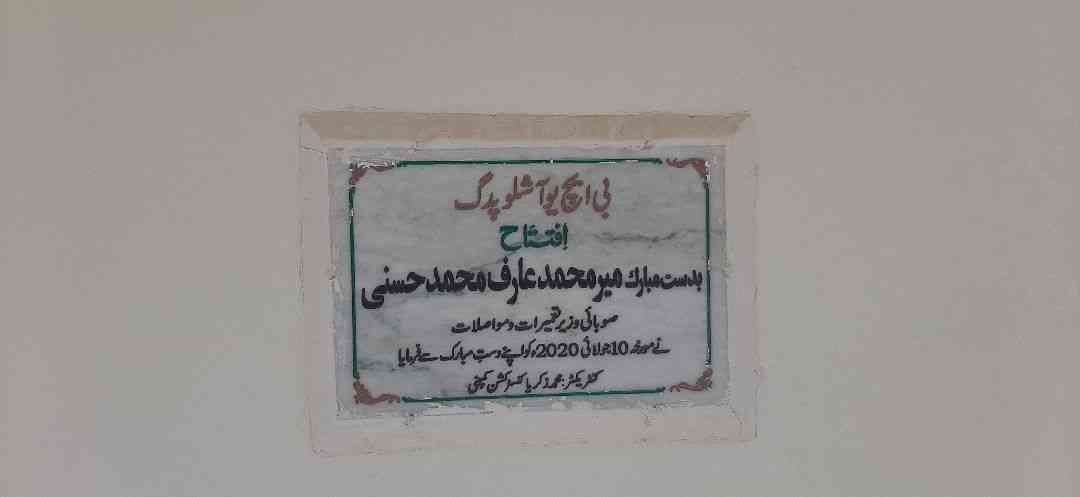 بی ایچ یو آشلو پدگ
افتتاح
بدست مبارک میر محمد عارف محمد حسنی
صوبائی وزیر تعمیرات و مواصلات
نے مورخہ 10 جولائی 2020ء کو اپنے دستِ مبارک سے فرمایا
کنٹریکٹر: محمد زکریا کنسٹرکشن کمپنی